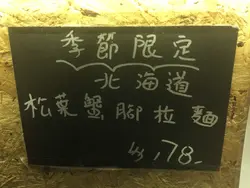 季節限定
北海道
松葉蟹腳拉麵
$178.